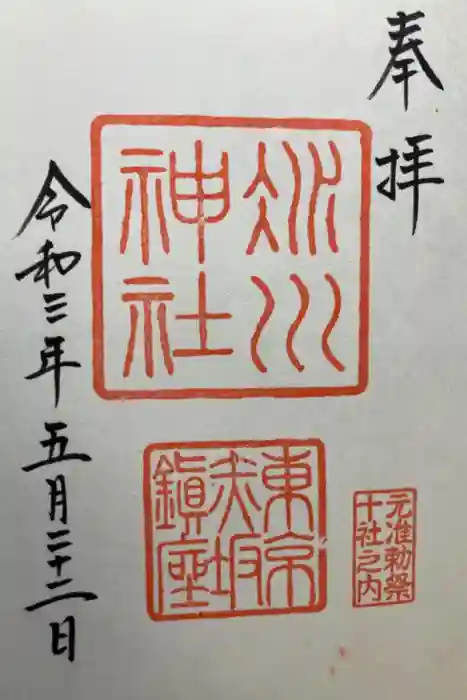 奉拝
氷川
神社
東京
赤坂
鎮座
元准勅祭
十社之内
令和三年五月二十二日